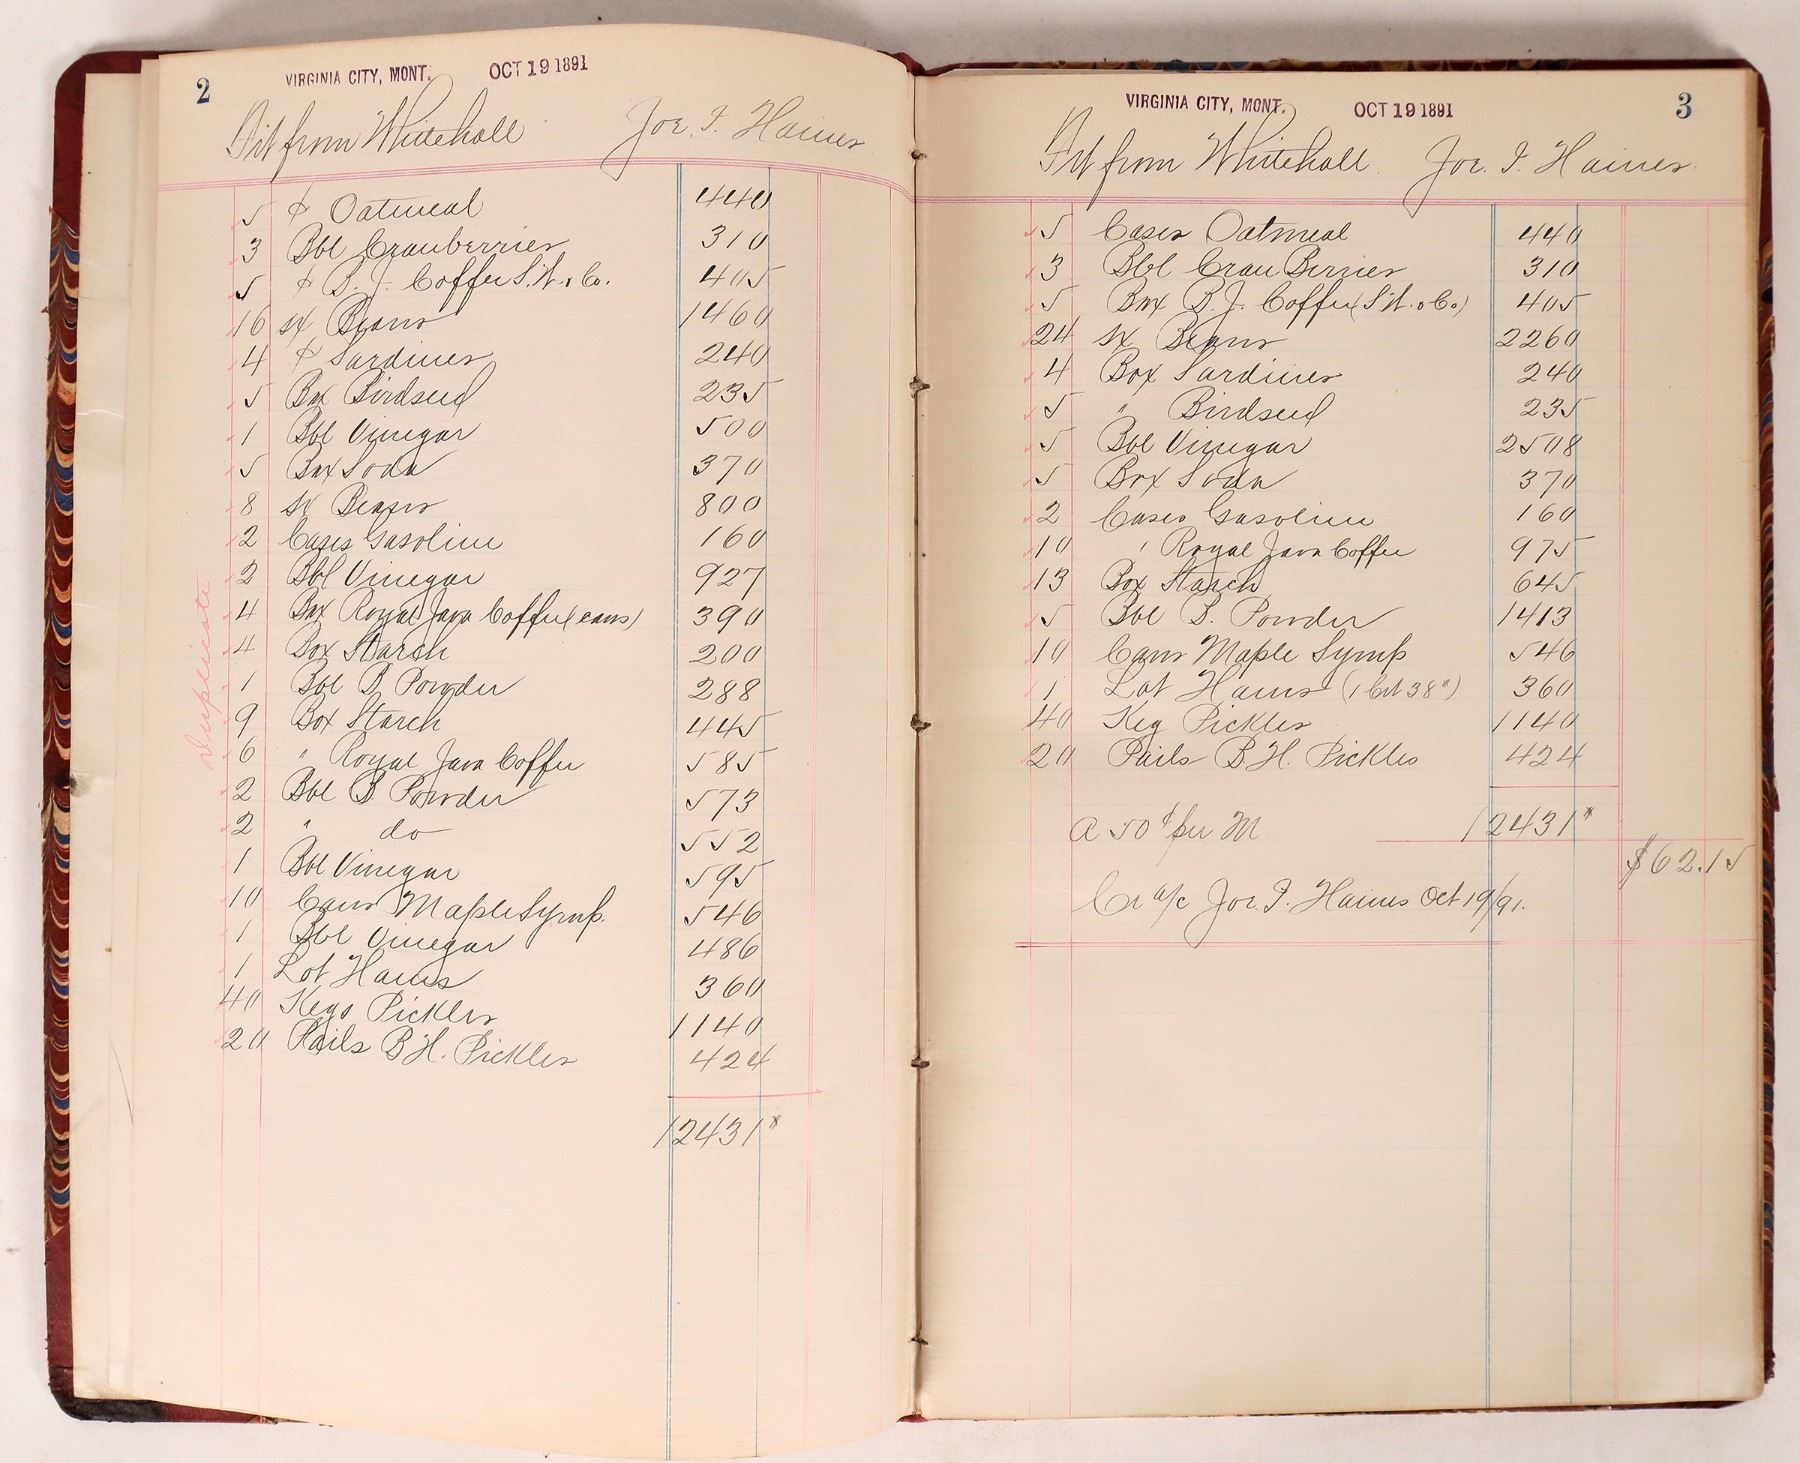 2 VIRGINIA CITY, MONT. OCT 19 1891
Frt from Whitehall Joe. F. Haines
5 ¢ Oatmeal 440
3 Bbl Cranberries 310
5 ¢ B. J. Coffee S.W. & Co. 405
16 sx Beans 1460
4 ¢ Sardines 240
5 Box Birdseed 235
1 Bbl Vinegar 500
5 Box Soda 370
8 sx Beans 800
2 Cases Gasoline 160
2 Bbl Vinegar 927
4 Box Royal Java Coffee (cans) 390
4 Box Starch 200
1 Bbl B Powder 288
9 Box Starch 445
6 " Royal Java Coffee 585
2 Bbl B. Powder 573
2 " do 552
1 Bbl Vinegar 595
10 Cans Maple Syrup. 546
1 Bbl Vinegar 486
1 Lot Hams 360
40 Kegs Pickles 1140
20 Pails B H. Pickles 424
12431#
Duplicate
VIRGINIA CITY, MONT. OCT 19 1891 3
Frt from Whitehall Joe. F. Haines
5 Cases Oatmeal 440
3 Bbl Cran Berries 310
5 Box B. J. Coffee (S.W. & Co) 405
24 sx Beans 2260
4 Box Sardines 240
5 " Birdseed 235
5 Bbl Vinegar 2508
5 Box Soda 370
2 Cases Gasoline 160
10 " Royal Java Coffee 975
13 Box Starch 645
5 Bbl B. Powder 1413
10 Cans Maple Syrup 546
1 Lot Hams (1 Crt 38#) 360
40 Keg Pickles 1140
20 Pails B H. Pickles 424
a 50¢ per M 12431#
$62.15
Cr a/c Joe. F. Haines Oct 19/91.